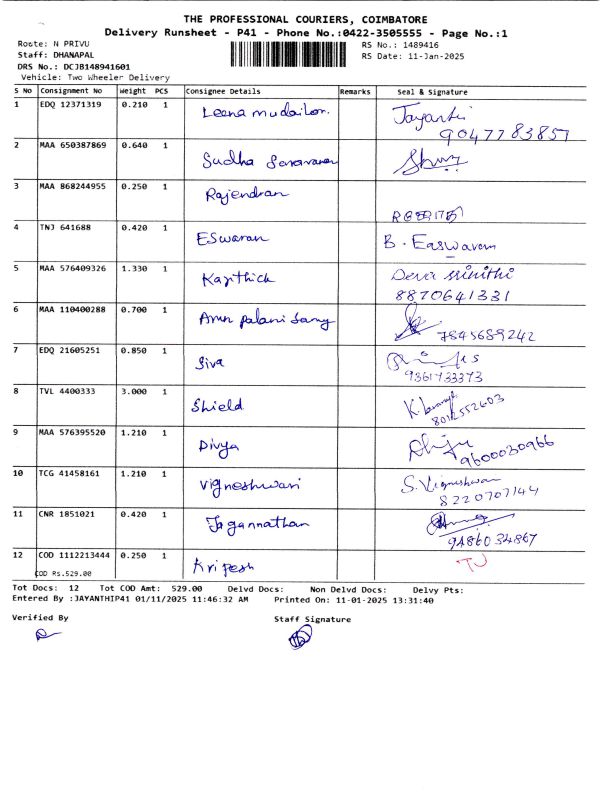 THE PROFESSIONAL COURIERS, COIMBATORE
Delivery Runsheet - P41 - Phone No.:0422-3505555 - Page No.:1
Route: N PRIVU
RS No.: 1489416
Staff: DHANAPAL
RS Date: 11-Jan-2025
DRS No.: DCJB148941601
Vehicle: Two Wheeler Delivery
S No Consignment No Weight PCS Consignee Details Remarks Seal & Signature
1 EDQ 12371319 0.210 1 Leena mudailor. Jayanti
9047783857
2 MAA 650387869 0.640 1 Sudha
3 MAA 868244955 0.250 1 Rajendran
4 TNJ 641688 0.420 1 ESwaran B. Easwaran
5 MAA 576409326 1.330 1 Karthick Devi srinithi
8870641331
6 MAA 110400288 0.700 1 Arun palani
7845689242
7 EDQ 21605251 0.850 1 Siva
9361733373
8 TVL 4400333 3.000 1 Shield
9 MAA 576395520 1.210 1 Divya
9600030966
10 TCG 41458161 1.210 1 Vigneshwari S. Vigneshwari
8220707144
11 CNR 1851021 0.420 1 Jagannathan
9486034867
12 COD 1112213444 0.250 1 Kripesh TJ
COD RS.529.00
Tot Docs: 12 Tot COD Amt: 529.00 Delvd Docs: Non Delvd Docs: Delvy Pts:
Entered By :JAYANTHIP41 01/11/2025 11:46:32 AM Printed On: 11-01-2025 13:31:40
Verified By
Staff Signature